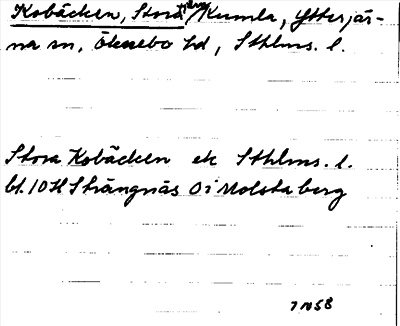 Kobäcken, Stora /Kumla, Ytterjär-
na sn, Öknebo hd, Sthlms. l.
Stora Kobäcken ek Sthlms. l.
bl. 10H Strängnäs Oi Molstaberg
7 NO 5 B